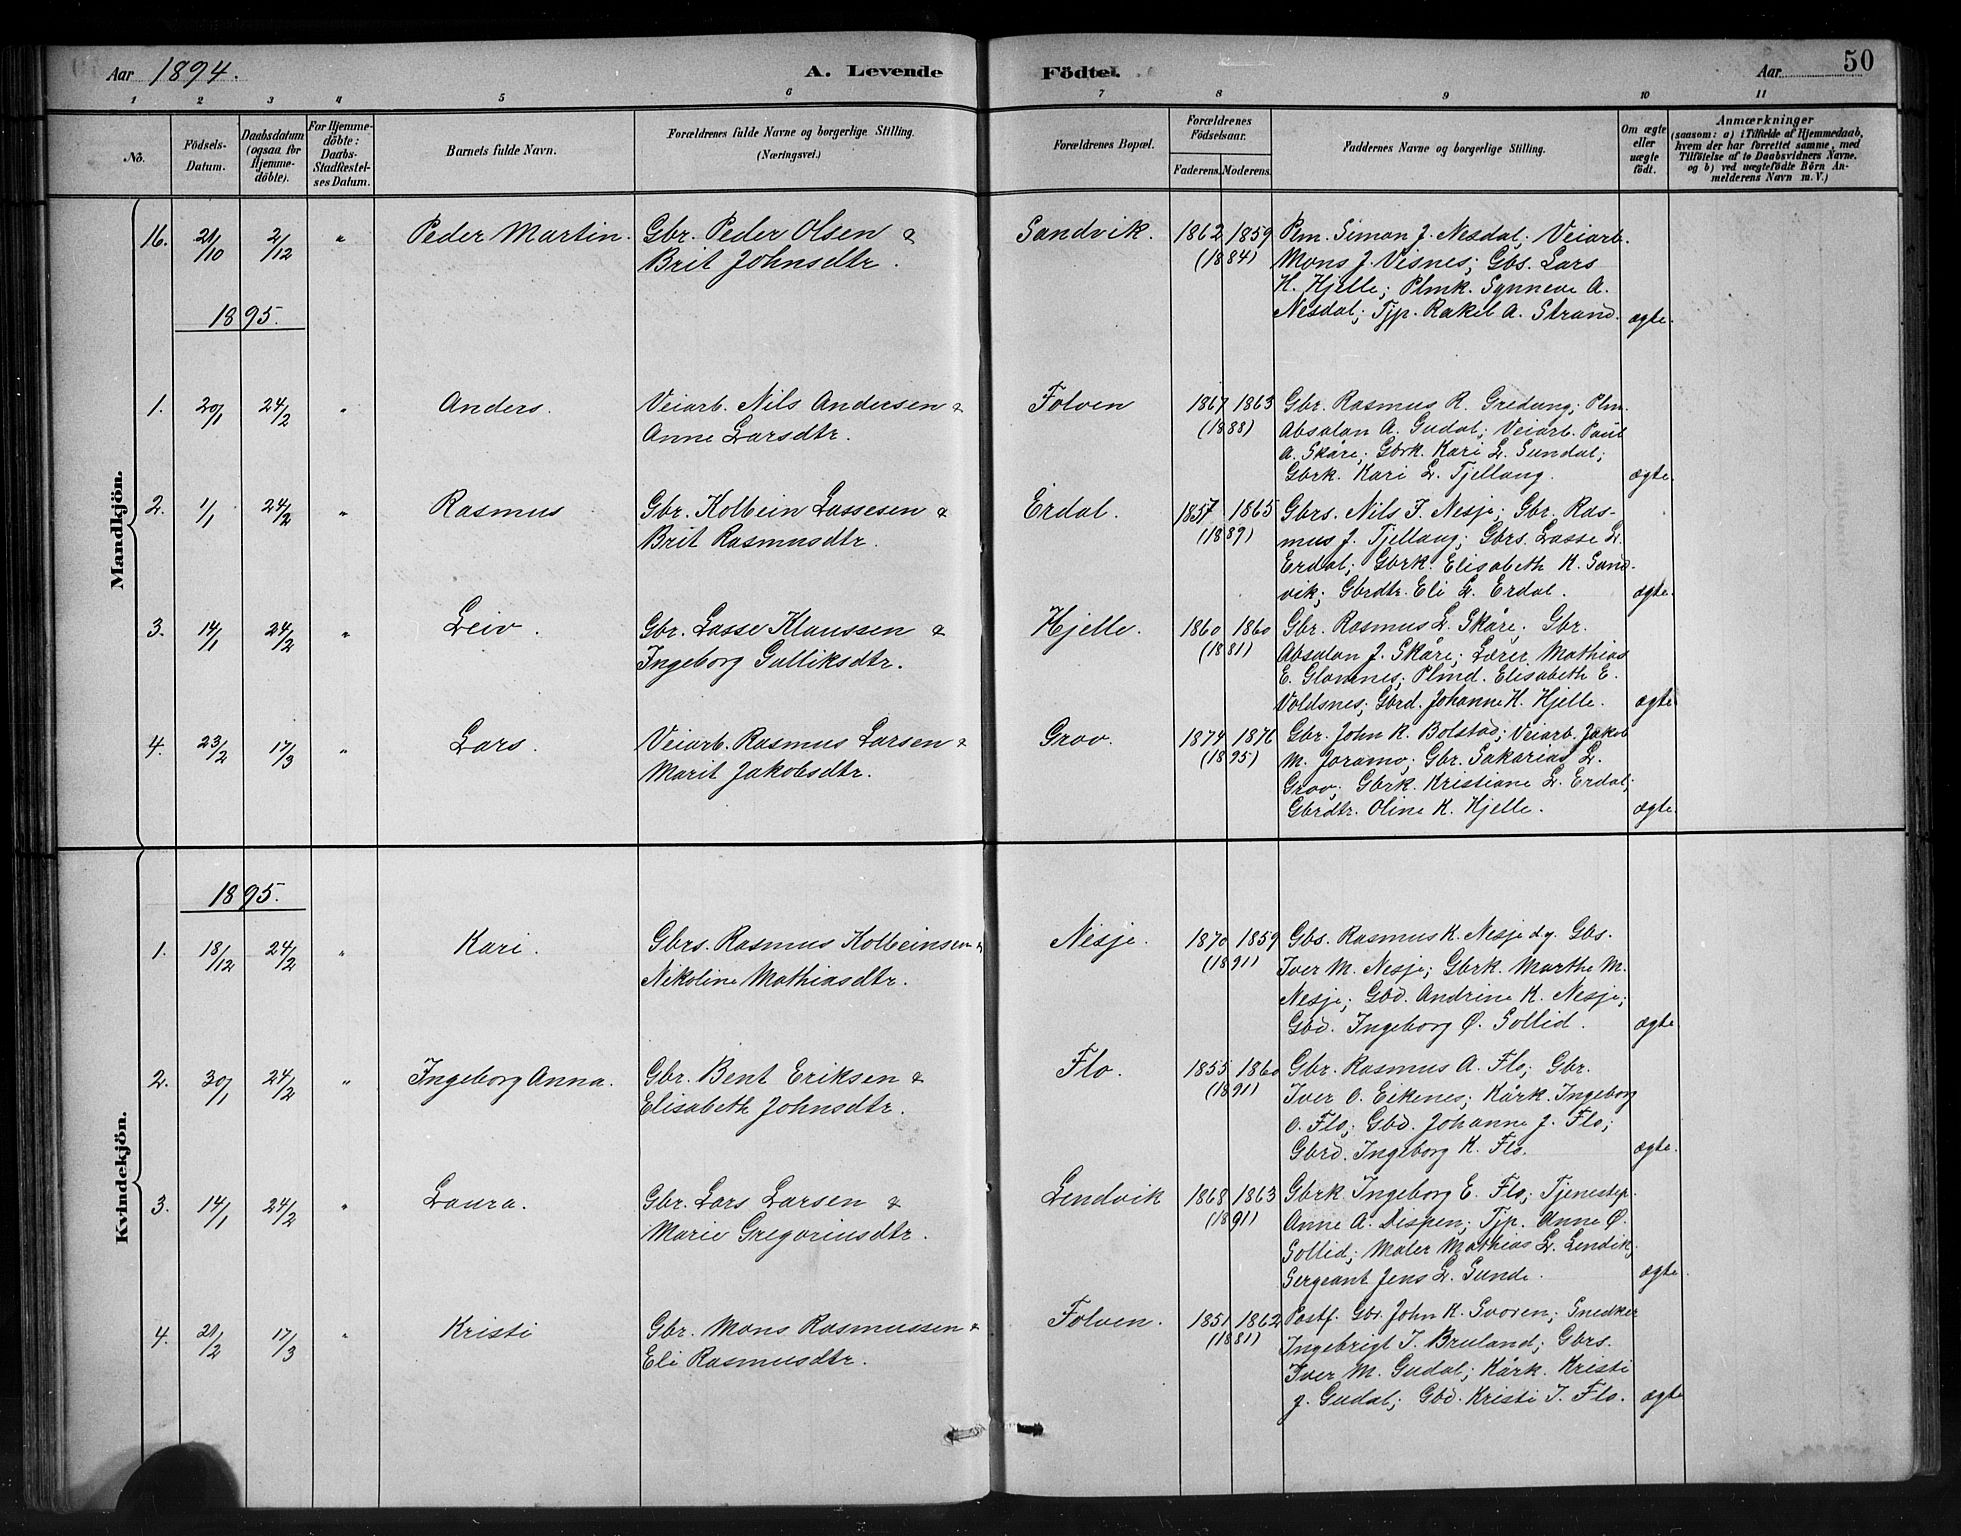 Aar 1894. A. Levende Födte. Aar 50
1 2 3 4 5 6 7 8 9 10 11
No. Födsels-Datum. Daabsdatum (ogsaa for Hjemme-döbte). For Hjemme-döbte: Daabs-Stadfæstel-ses Datum. Barnets fulde Navn. Forældrenes fulde Navne og borgerlige Stilling. (Næringsvei.) Forældrenes Bopæl. Forældrenes Födselsaar. Faderens. Moderens. Faddernes Navne og borgerlige Stilling. Om ægte eller uægte födt. Anmærkninger (saasom: a) i Tilfælde af Hjemmedaab, hvem der har forrettet samme, med Tilföielse af to Daabsvidners Navne. og b) ved uægtefödte Börn An-melderens Navn m. V.)
Mandkjön.
16. 21/10 2/12 " Peder Martin. Gbr. Peder Olsen & Sandvik. 1862 1859 Plm. Simon J. Nesdal; Veiarb.
Brit Johnsdtr. (1884) Mons J. Visnes; Gbs. Lars
H. Hjelle; Plmk. Synneve A.
1895. Nesdal; Tjp. Rakel A. Strand. ægte.
1. 20/1 24/2 " Anders. Veiarb. Nils Andersen & Folven 1867 1863 Gbr. Rasmus R. Gredung; Plm.
Anne Larsdtr. (1888) Absalon A. Gudal; Veiarb. Paul
A. Skåre; Gbrk. Kari L. Sundal;
Gbrk. Kari L. Tjellaug. ægte.
2. 1/1 24/2 " Rasmus Gbr. Kolbein Lassesen & Erdal. 1857 1865 Gbrs. Nils J. Nesje; Gbr. Ras-
Brit Rasmusdtr. (1889) mus J. Tjellaug; Gbrs. Lasse L.
Erdal; Gbrk. Elisabeth K. Sand-
vik; Gbrdtr. Eli L. Erdal. ægte.
3. 14/1 24/2 " Leiv. Gbr. Lasse Klaussen & Hjelle. 1860 1860 Gbr. Rasmus L. Skåre. Gbr.
Ingeborg Gulliksdtr. (1881) Absalon J. Skåre; Lærer Mathias
E. Glomnes; Plmd. Elisabeth E.
Voldsnes; Gbrd. Johanne H. Hjelle. ægte
4. 23/2 17/3 " Lars. Veiarb. Rasmus Larsen & Grov. 1874 1876 Gbr. John R. Bolstad; Veiarb. Jakob
Marit Jakobsdtr. (1895) M. Joramo; Gbr. Sakarias L.
Grov; Gbrk. Kristiane L. Erdal;
Gbrdtr. Oline K. Hjelle. ægte
Kvindekjön.
1895.
1. 18/12 24/2 " Kari. Gbrs. Rasmus Kolbeinsen & Nesje. 1870 1859 Gbs. Rasmus K. Nesje d.y. Gbs.
Nikoline Mathiasdtr. (1891) Iver M. Nesje; Gbrk. Marthe M.
Nesje; Gbd. Andrine K. Nesje;
Gbd. Ingeborg Ø. Sollid. ægte
2. 30/1 24/2 " Ingeborg Anna. Gbr. Bent Eriksen & Flo. 1855 1860 Gbr. Rasmus A. Flo; Gbr.
Elisabeth Johnsdtr. (1891) Iver O. Eikenes; Kårk. Ingeborg
O. Flo; Gbd. Johanne J. Flo;
Gbrd. Ingeborg K. Flo. ægte.
3. 14/1 24/2 " Laura. Gbr. Lars Larsen & Lendvik 1868 1863 Gbrk. Ingeborg E. Flo; Tjenestep.
Marie Gregoriusdtr. (1891) Anne A. Dispen; Tjp. Anne Ø.
Sollid; Maler Mathias L. Lendik;
Sergeant Jens L. Sunde. ægte.
4. 21/2 17/3 " Kristi Gbr. Mons Rasmussen & Folven. 1851 1862 Postf. Gbr. John K. Svoren; Snedker
Eli Rasmusdtr. (1881) Ingebrigt J. Bruland; Gbrs.
Iver M. Gudal; Kårk. Kristi
J. Gudal; Gbd. Kristi J. Flo. ægte